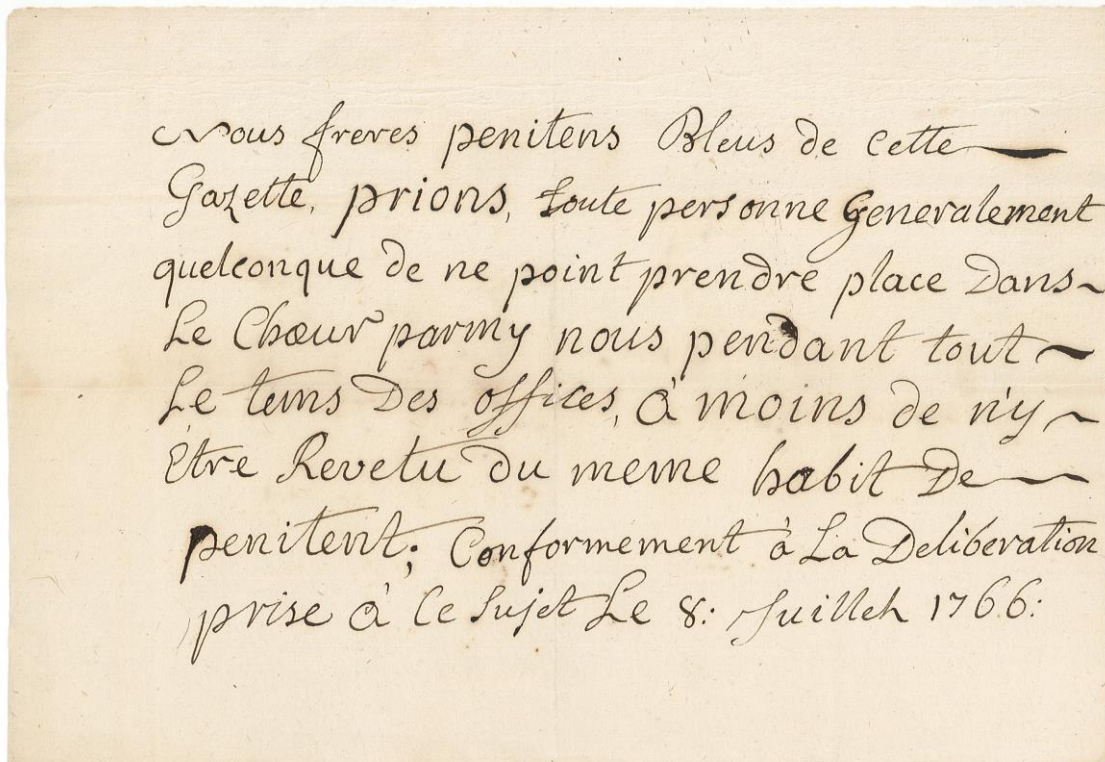 Nous freres penitens Bleus de cette
Gazette, prions, toute personne Generalement
quelconque de ne point prendre place Dans
Le Chœur parmy nous pendant tout
Le tems Des offices, à moins de n'y
Etre Revetu du meme habit De
penitent; Conformement à La Deliberation
prise à Ce Sujet Le 8: Juillet 1766: